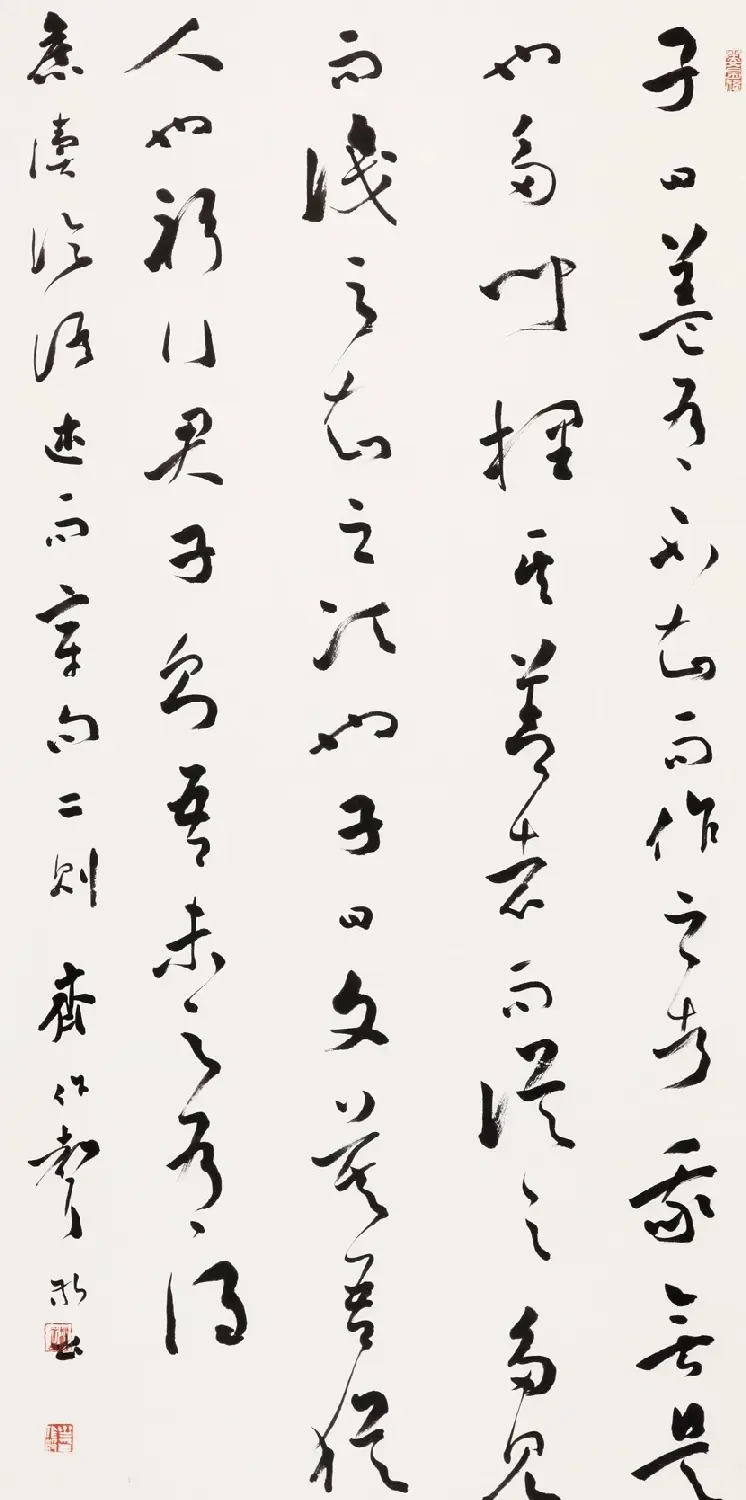 子曰蓋有不知而作之者我無是
也多聞擇其善者而從之多見
而識之知之次也子曰文莫吾猶
人也躬行君子則吾未之有得
讀論語述而章句二則 齊作聲